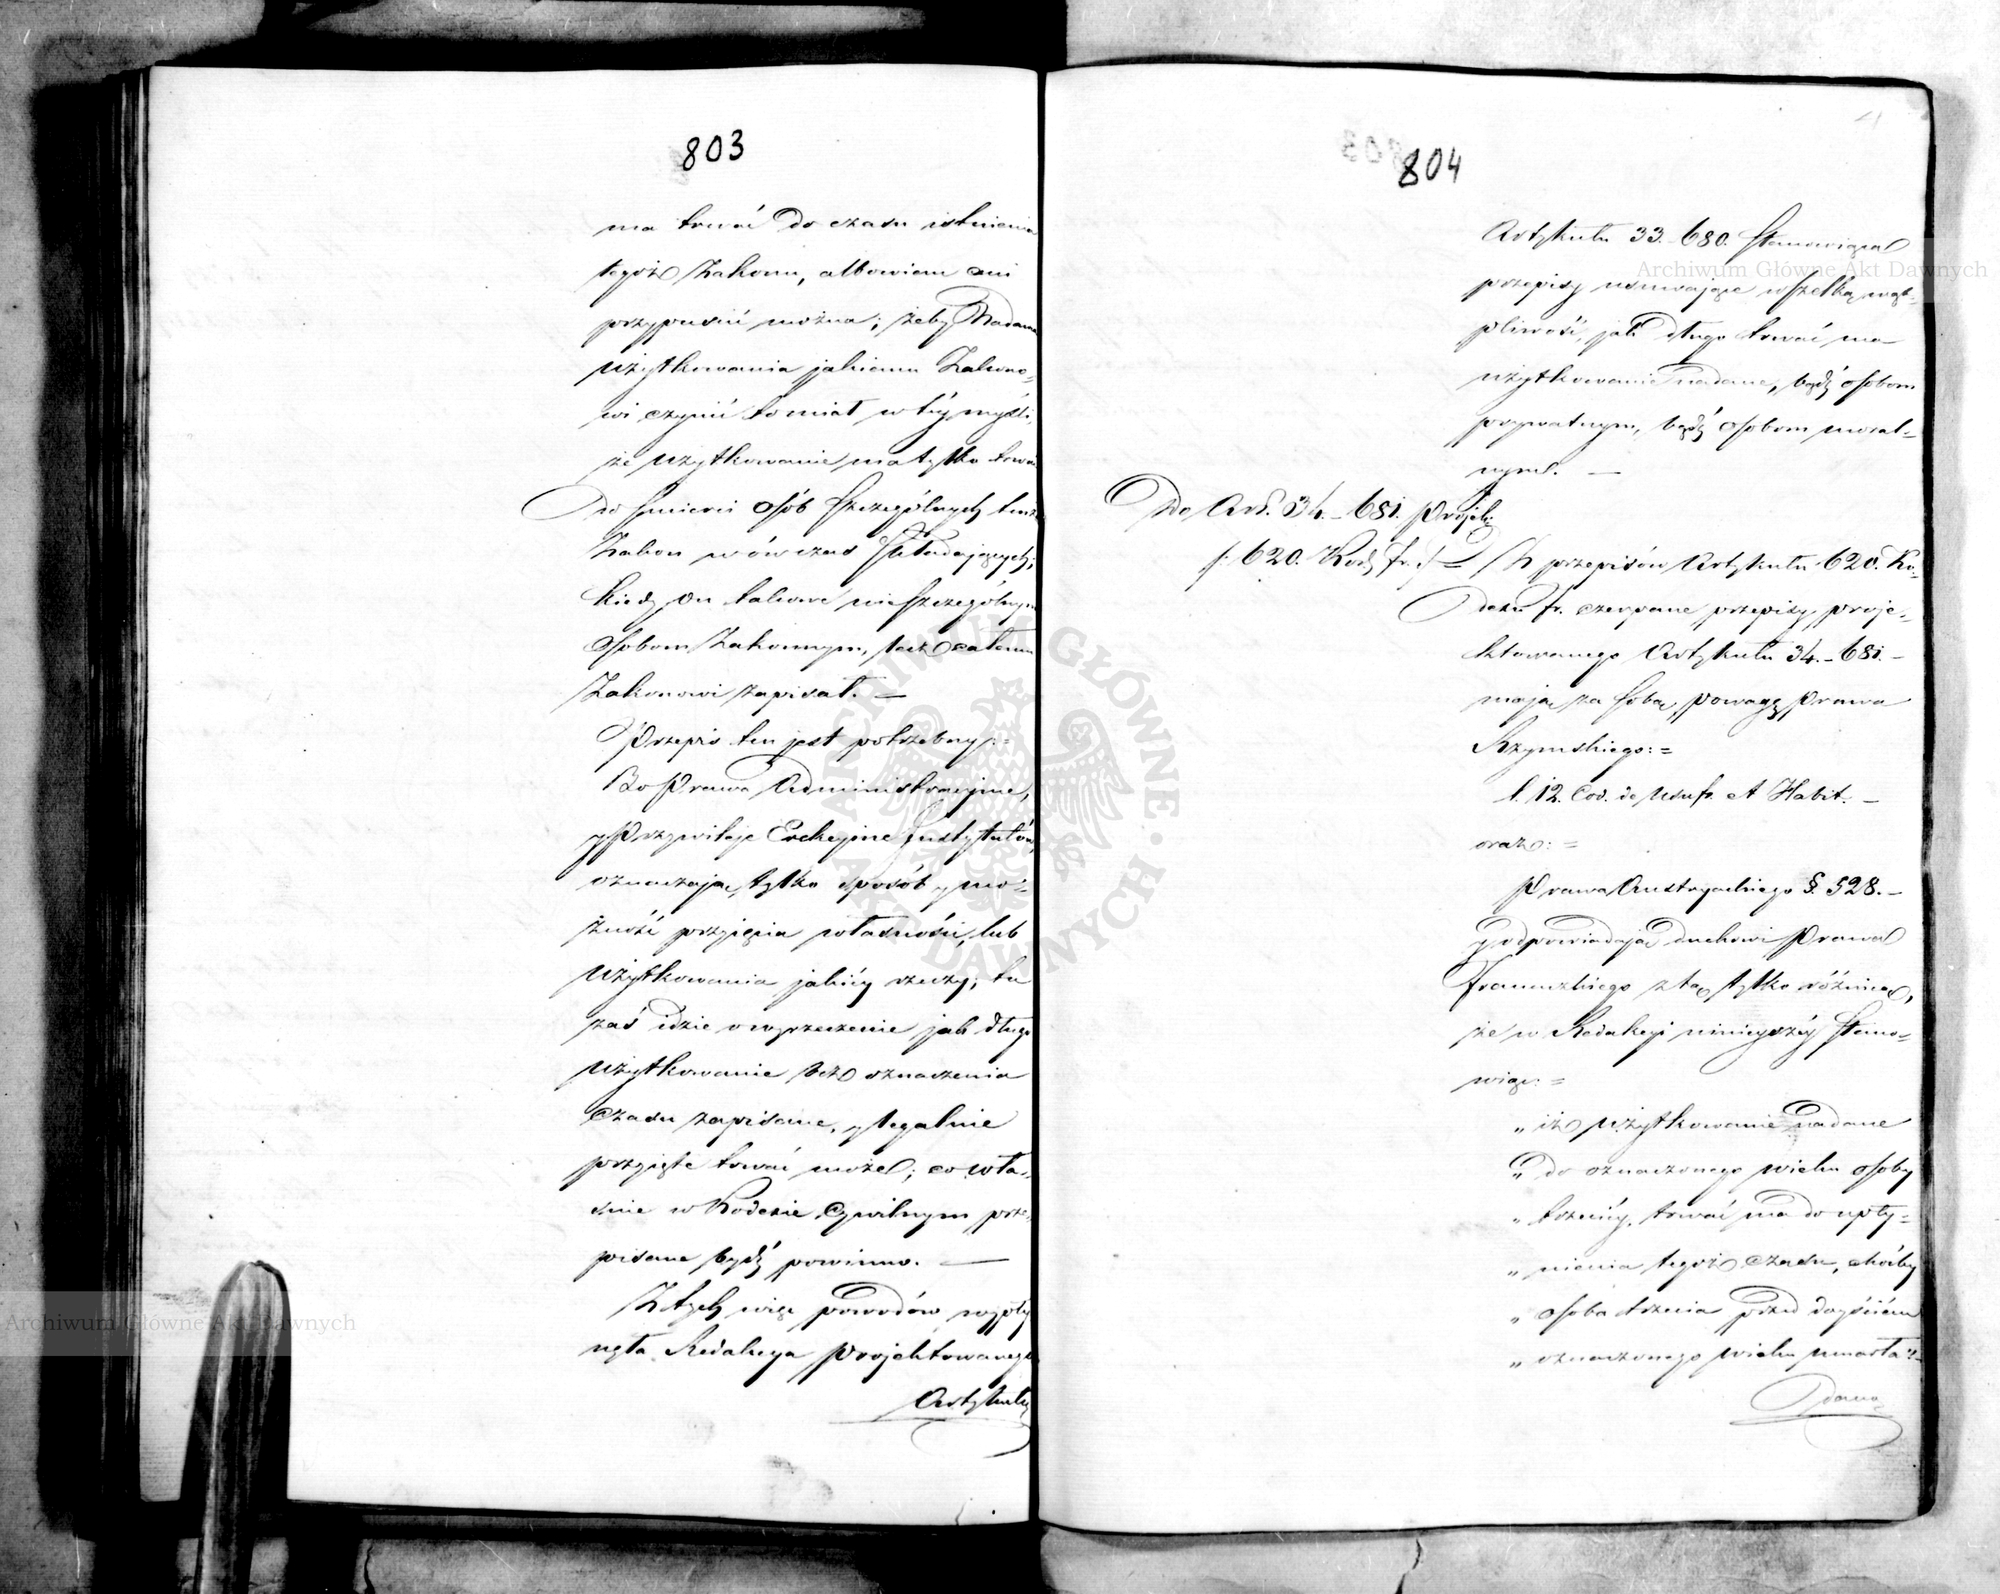 803
ma trwać do czasu istnienia
tegoż Zakonu, albowiem ani
przypuścić można; żeby Nadanie
użytkowania jakiemu Zakono-
wi czynić to miał w téy myśli,
że użytkowanie ma tylko trwać
do śmierci osób szczególnych tenże
Zakon wówczas składających;
kiedy on takowe nie szczególnym
osobom Zakonnym, lecz całemu
Zakonowi zapisał. —
Przepis ten jest potrzebny:=
Bo Prawa Administracyjne,
y Przywileje Erekcyjne Instytutów,
oznaczają tylko sposób y mo-
żność przyjęcia własności, lub
użytkowania jakiéy rzeczy; tu
zaś idzie o wyrzeczenie jak długo
użytkowanie bez oznaczenia
czasu zapisane, y legalnie
przyjęte trwać może; co wła-
śnie w Kodexie Cywilnym prze-
pisane bydź powinno. —
Z tych więc powodów, wypły-
nęła Redakcya projektowanego
Artykułu
804
Artykułu 33.-680. stanowiąca
przepisy usuwające wszelką wąt-
pliwość, jak długo trwać ma
użytkowanie nadane, bądź osobom
prywatnym, bądź osobom moral-
nym. —
Do Art. 34.-681. Projek:
/: 620. Kod. fr. :/ — Z przepisów Artykułu 620. Ko-
dexu fr. czerpane przepisy, proje-
ktowanego Artykułu 34.-681.-
mają za sobą, powagę Prawa
Rzymskiego:=
l. 12. Cod. de Usufr. et Habit. —
oraz:=
Prawa Austryackiego §. 528.-
y odpowiadają duchowi Prawa
Francuzkiego z tą tylko różnicą,
że w Redakcyi ninieyszéy stano-
wiąc:=
„ iż użytkowanie nadane
„ do oznaczonego wieku osoby
„ trzeciéy, trwać ma do upły-
„ nienia tegoż czasu, choćby
„ osoba trzecia przed doyściem
„ oznaczonego wieku umarła:-
dano-
Archiwum Główne Akt Dawnych
Archiwum Główne Akt Dawnych
ARCHIWUM GŁÓWNE AKT DAWNYCH